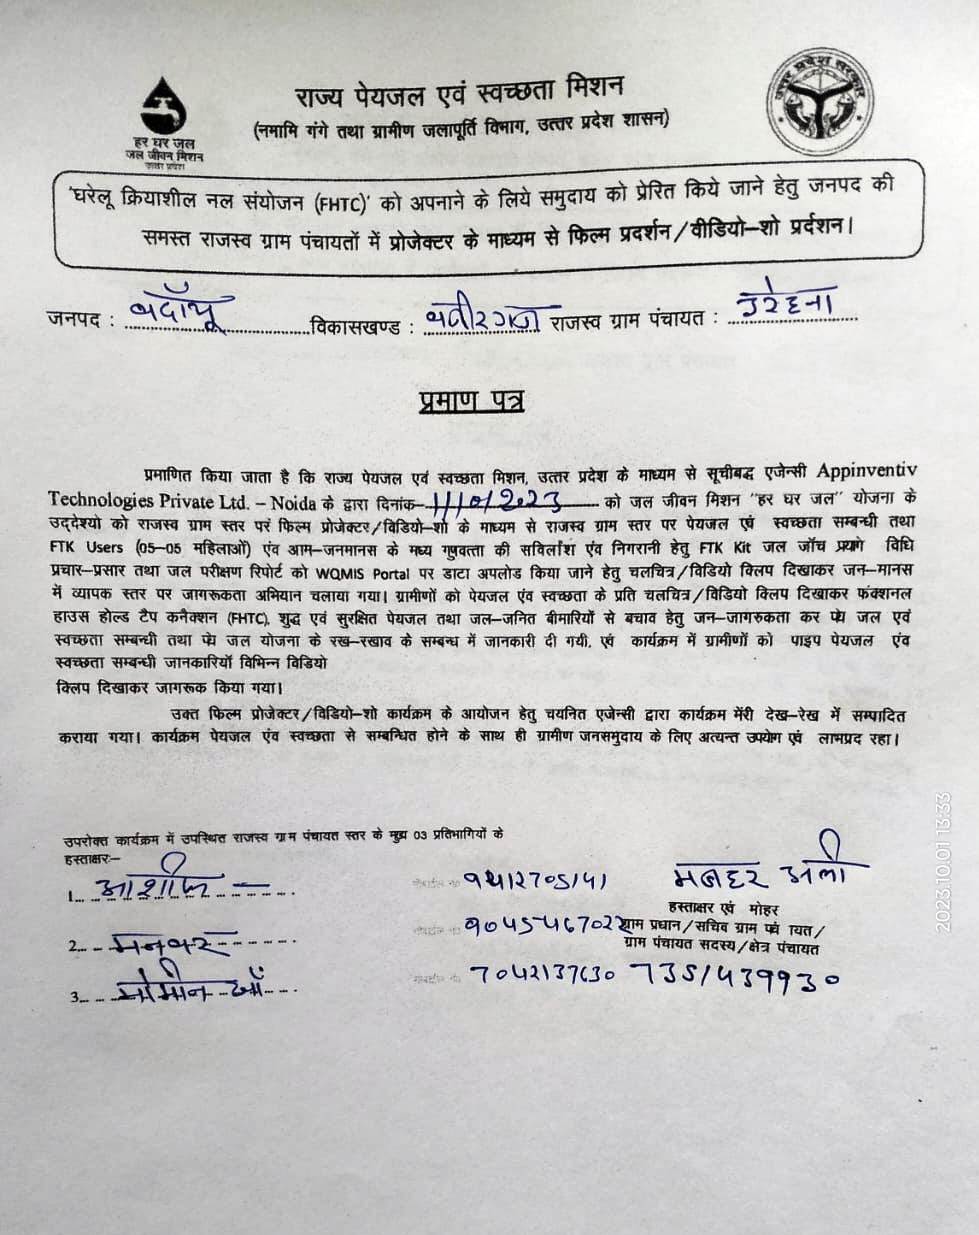 राज्य पेयजल एवं स्वच्छता मिशन
(नमामि गंगे तथा ग्रामीण जलापूर्ति विभाग, उत्तर प्रदेश शासन)
हर घर जल
जल जीवन मिशन
उत्तर प्रदेश
उत्तर प्रदेश सरकार
'घरेलू क्रियाशील नल संयोजन (FHTC)' को अपनाने के लिये समुदाय को प्रेरित किये जाने हेतु जनपद की
समस्त राजस्व ग्राम पंचायतों में प्रोजेक्टर के माध्यम से फिल्म प्रदर्शन/वीडियो–शो प्रर्दशन।
जनपद : बदॉयू विकासखण्ड : वजीरगंज राजस्व ग्राम पंचायत : उरेहना
प्रमाण पत्र
प्रमाणित किया जाता है कि राज्य पेयजल एवं स्वच्छता मिशन, उत्तर प्रदेश के माध्यम से सूचीबद्ध एजेन्सी Appinventiv
Technologies Private Ltd. – Noida के द्वारा दिनांक- 1/10/2023 को जल जीवन मिशन "हर घर जल" योजना के
उद्देश्यो को राजस्व ग्राम स्तर पर फिल्म प्रोजेक्टर/विडियो–शो के माध्यम से राजस्व ग्राम स्तर पर पेयजल एवं स्वच्छता सम्बन्धी तथा
FTK Users (05–05 महिलाओं) एंव आम–जनमानस के मध्य गुणवत्ता की सर्विलॉंश एंव निगरानी हेतु FTK Kit जल जॉच प्रयोग विधि
प्रचार–प्रसार तथा जल परीक्षण रिपोर्ट को WQMIS Portal पर डाटा अपलोड किया जाने हेतु चलचित्र/विडियो क्लिप दिखाकर जन–मानस
में व्यापक स्तर पर जागरूकता अभियान चलाया गया। ग्रामीणों को पेयजल एंव स्वच्छता के प्रति चलचित्र/विडियो क्लिप दिखाकर फंक्शनल
हाउस होल्ड टैप कनैक्शन (FHTC), शुद्ध एवं सुरक्षित पेयजल तथा जल–जनित बीमारियों से बचाव हेतु जन–जागरुकता कर पेय जल एवं
स्वच्छता सम्बन्धी तथा पेय जल योजना के रख–रखाव के सम्बन्ध में जानकारी दी गयी, एवं कार्यक्रम में ग्रामीणों को पाइप पेयजल एंव
स्वच्छता सम्बन्धी जानकारियों विभिन्न विडियो
क्लिप दिखाकर जागरूक किया गया।
उक्त फिल्म प्रोजेक्टर/विडियो–शो कार्यक्रम के आयोजन हेतु चयनित एजेन्सी द्वारा कार्यक्रम मेंरी देख–रेख में सम्पादित
कराया गया। कार्यक्रम पेयजल एंव स्वच्छता से सम्बन्धित होने के साथ ही ग्रामीण जनसमुदाय के लिए अत्यन्त उपयोग एवं लाभप्रद रहा।
उपरोक्त कार्यक्रम में उपस्थित राजस्व ग्राम पंचायत स्तर के मुख्य 03 प्रतिभागियों के
हस्ताक्षर:–
1. आशीफ मजहर अली
हस्ताक्षर एवं मोहर
2. मनवर 9045467022 ग्राम प्रधान/सचिव ग्राम पंचायत/
ग्राम पंचायत सदस्य/क्षेत्र पंचायत
3. मोमीन खॉं 7042137630 7351439930
2023.10.01 13:33